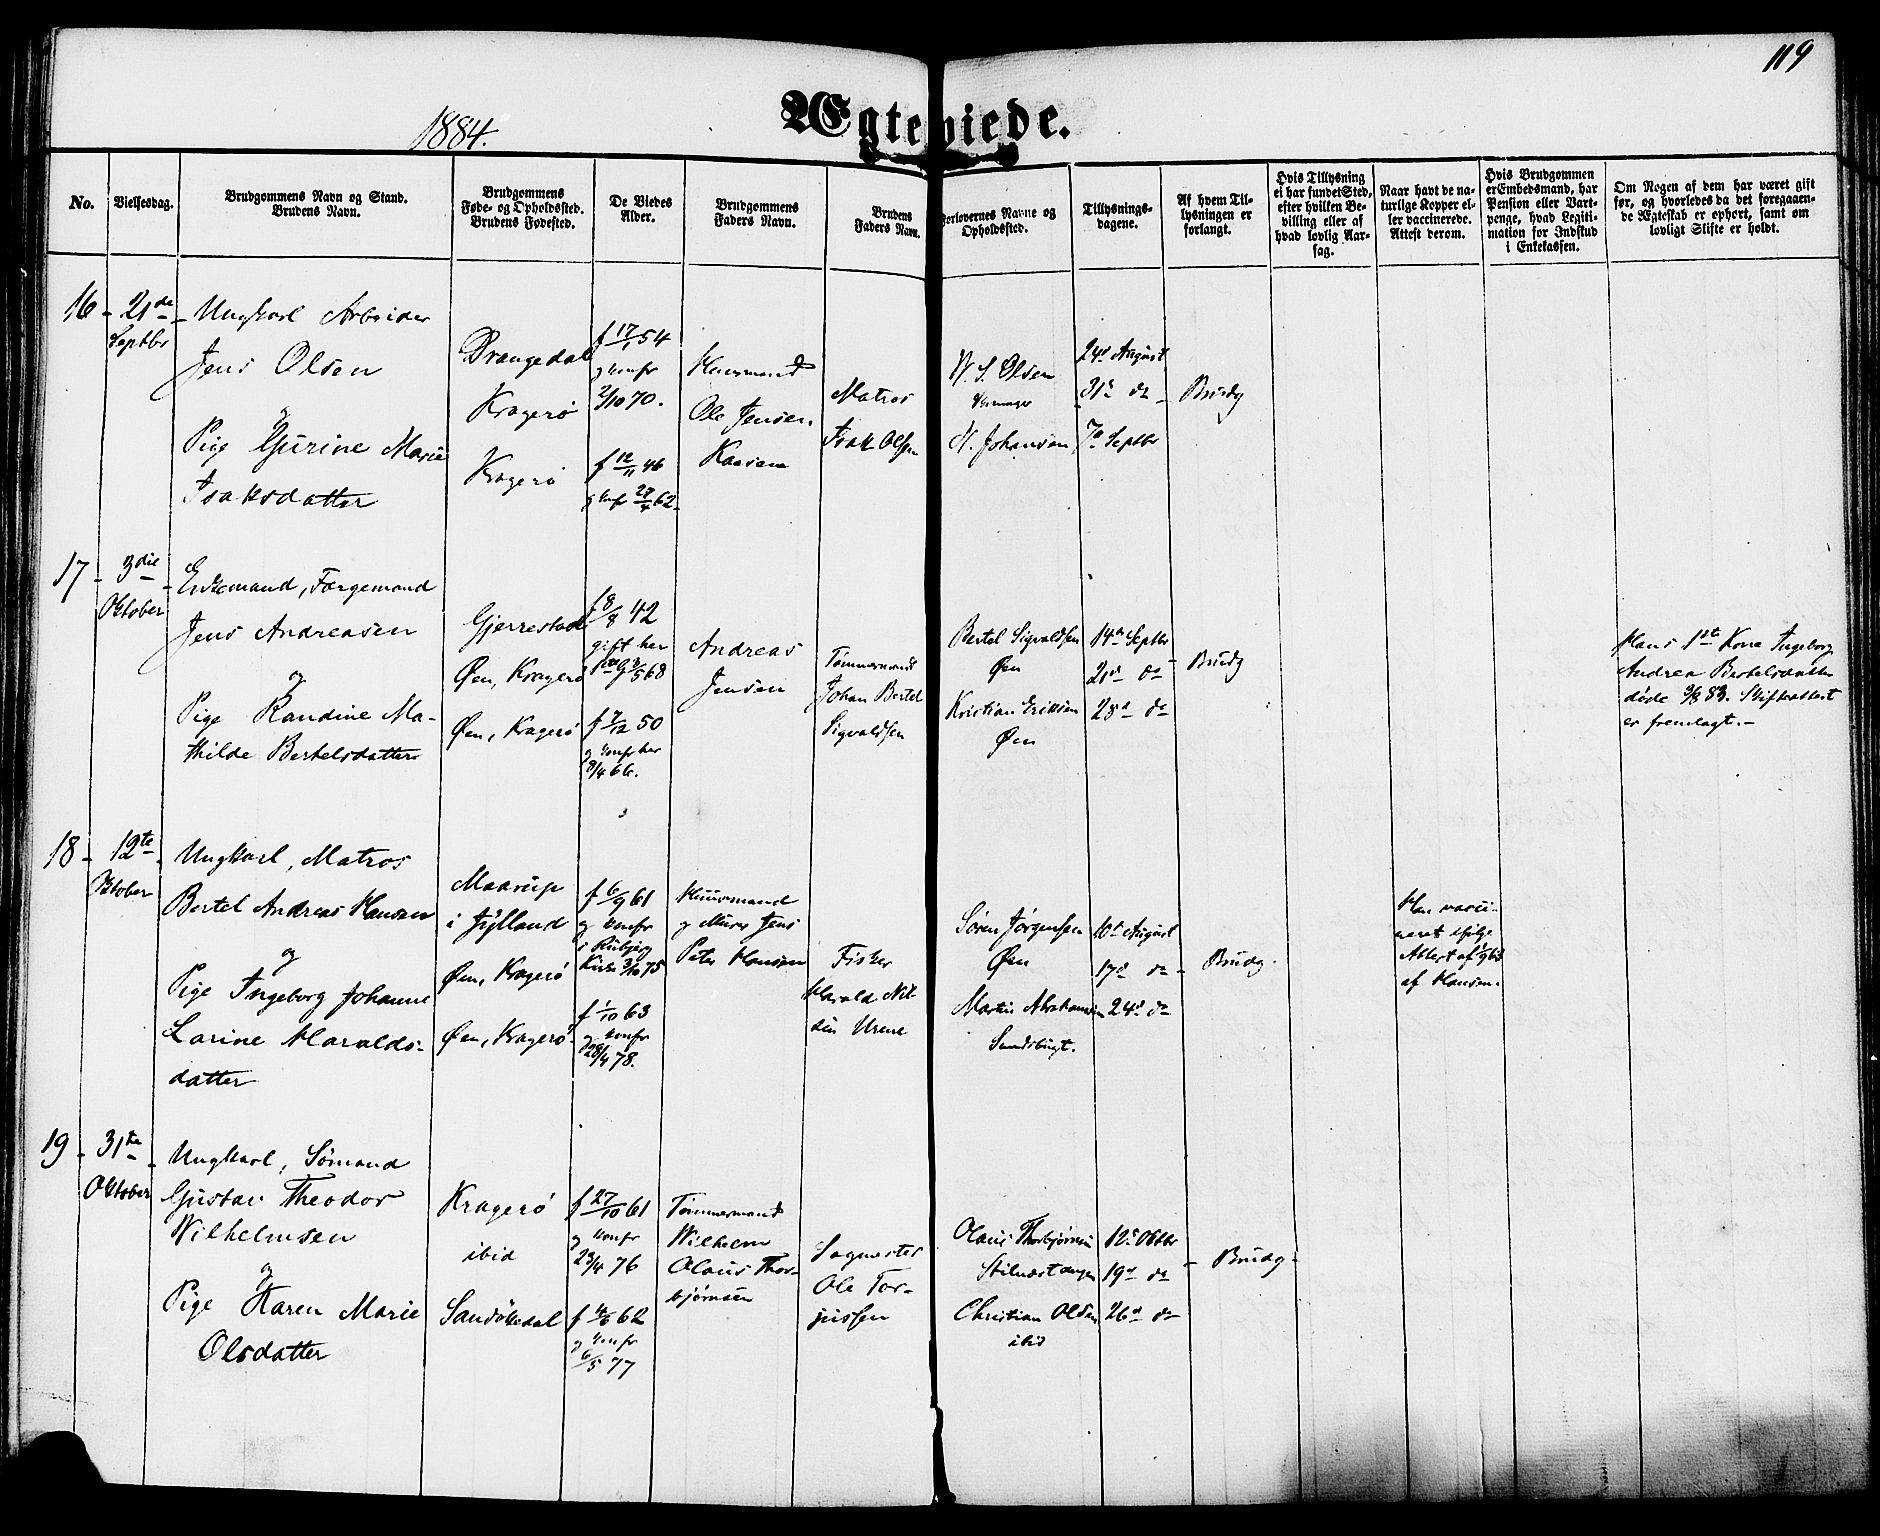 119
1884.
Ægteviede.
No.
Vielsesdag.
Brudgommens Navn og Stand.
Brudens Navn.
Brudgommens
Føde- og Opholdssted.
Brudens Fødested.
De Viedes
Alder.
Brudgommens
Faders Navn.
Brudens
Faders Navn.
Forlovernes Navne og
Opholdssted.
Tillysnings-
dagene.
Af hvem Til-
lysningen er
forlangt.
Hvis Tillysning
ei har fundet Sted,
efter hvilken Be-
villing eller af
hvad lovlig Aar-
sag.
Naar havt de na-
turlige Kopper el-
ler vaccinerede.
Attest derom.
Hvis Brudgommen
er Embedsmand, har
Pension eller Vart-
penge, hvad Legiti-
mation for Indskud
i Enkekassen.
Om Nogen af dem har været gift
før, og hvorledes da det foregaaen-
de Ægteskab er ophørt, samt om
lovligt Skifte er holdt.
16 - 21de
Septbr
Ungkarl Arbeider
Jens Olsen
og
Pige Gurine Marie
Isaksdatter
Drangedal
Kragerø
Kragerø
f 17/1 54
og konfr
2/10 70.
f 12/11 46
og konfr 27/4 62.
Huusmand
Ole Jensen
Kaasene
Matros
Isak Olsen
N. S. Olsen
N. Johansen
24d August
31t do
7d Septbr
Brudg
17 - 3die
Oktober
Enkemand, Færgemand
Jens Andreasen
og
Pige Randine Ma-
thilde Bertelsdatter
Gjerrestad
Øen, Kragerø
Øen, Kragerø
f 8/8 42
gift her
f 7/12 50
og konfr her
8/4 66.
Andreas
Jensen
Tømmermand
Johan Bertel
Sigvaldsen
Bertel Sigvaldsen
Øen
Kristian Eriksen
Øen
14de Septbr
21d do
28d do
Brudg
Hans 1ste Kone Ingeborg
Andrea Bertelsdatter
døde 9/8 83. Skifteattest
er fremlagt.-
18 - 12te
Oktober
Ungkarl, Matros
Bertel Andreas Hansen
og
Pige Ingeborg Johanne
Larine Haralds-
datter
Maarup
i Jylland
Øen, Kragerø
Øen, Kragerø
f 6/9 61
og konfr
i Rubjerg
Kirke 3/10 75
f 1/10 63
og konfr
28/4 78.
Huusmand
og Murer Jens
Peter Hansen
Fisker
Harald Nil-
sen Urene
Søren Jørgensen
Øen
Martin Abrahamsen
Sandsbugt.
10d August
17d do
24d do
Brudg.
Han vacci-
neret ifølge
Attest af
af Hansen.
19 - 31te
Oktober
Ungkarl, Sømand
Gustav Theodor
Wilhelmsen
og
Pige Karen Marie
Olsdatter
Kragerø
ibid
Sandøkedal
f 27/10 61
og konfr
23/4 76
f 4/6 62
og konfr
6/5 77
Tømmermand
Wilhelm
Olaus Thor-
bjørnsen
Sagmester
Ole Tor-
jussen
Olaus Thorbjørnsen
Stilnæstangen
Christian Olsen
ibid
12t Oktbr
19d do
26d do
Brudg.